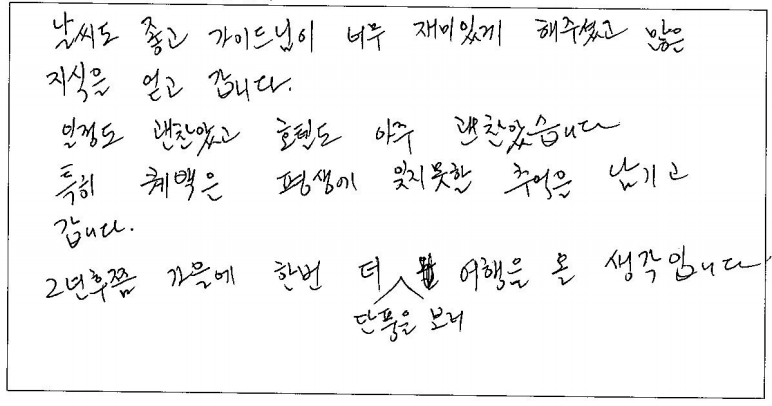 날씨도 좋고 가이드님이 너무 재미있게 해주셨고 많은
지식을 얻고 갑니다.
일정도 괜찮았고 호텔도 아주 괜찮았습니다
특히 퀘백은 평생에 잊지못한 추억을 남기고
갑니다.
2년후쯤 가을에 한번 더 여행을 올 생각입니다
단풍을 보러